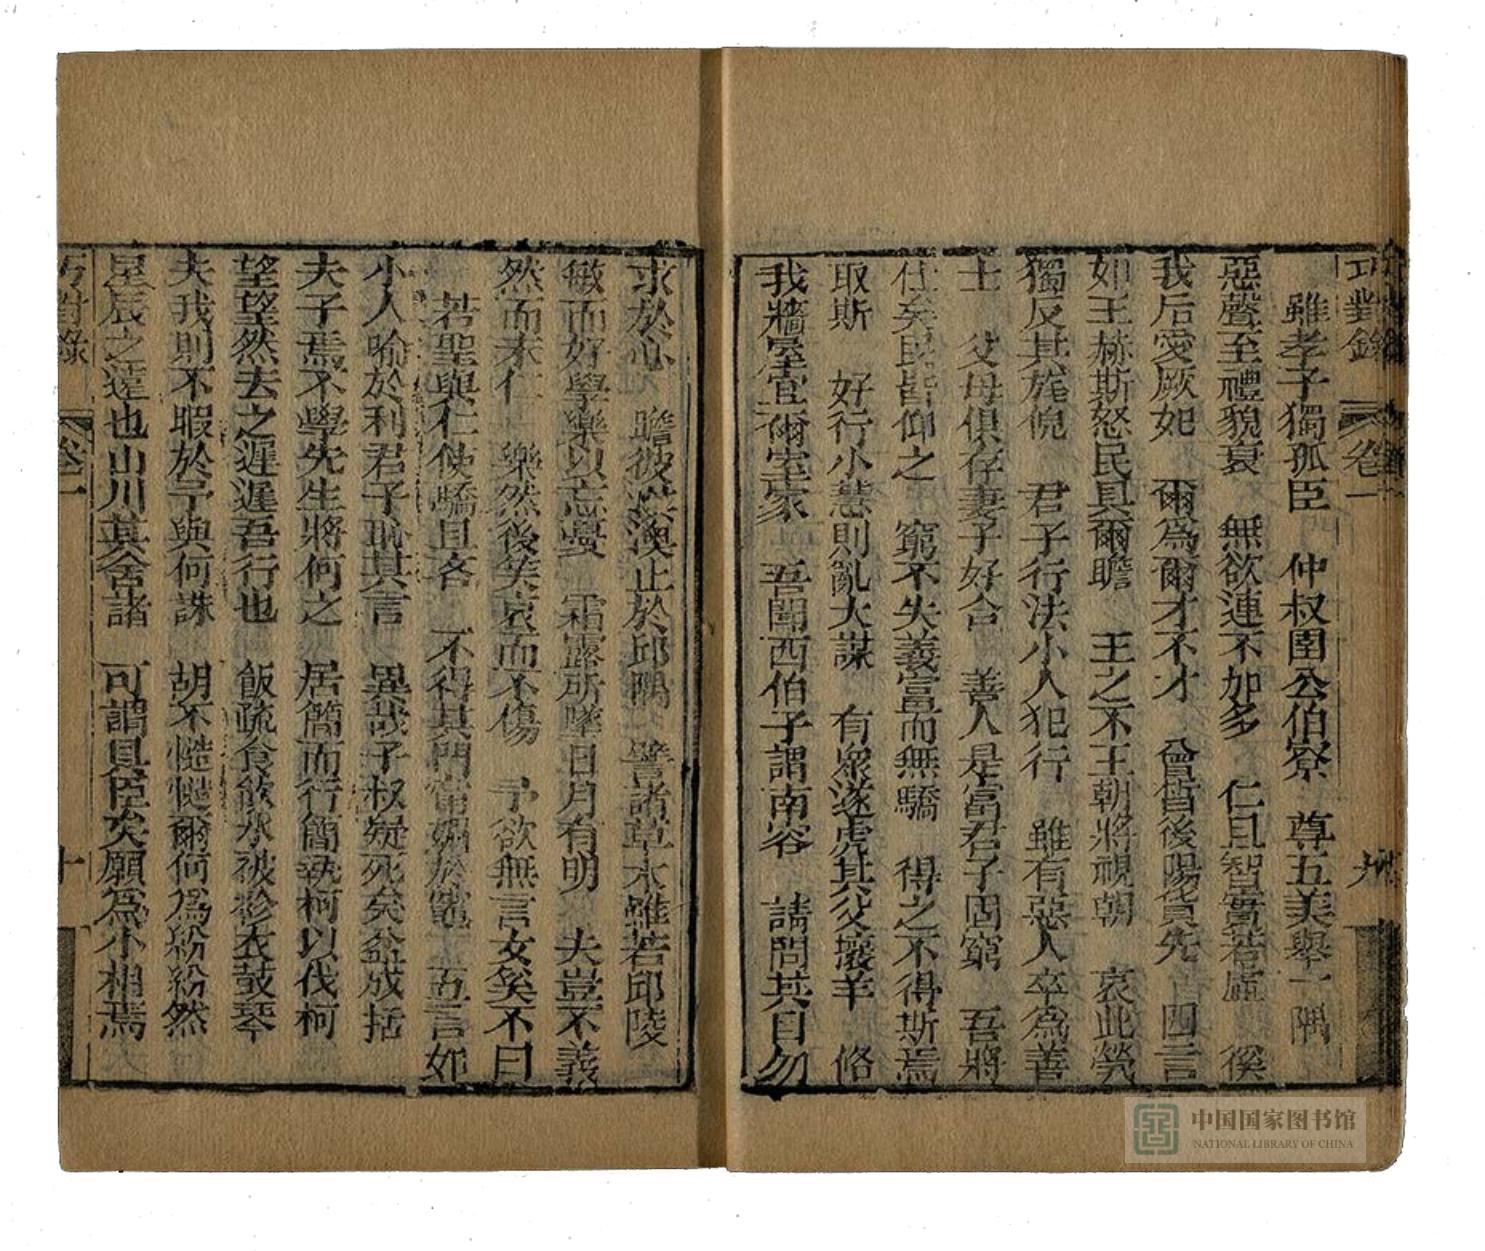 巧對錄 卷一 九
雖孝子獨孤臣 仲叔圉公伯寮 尊五美舉一隅
惡聲至禮貌衰 無欲速不加多 仁且智實若虛 徯
我后愛厥妃 爾為爾才不才 曾皙後陽貨先 四言
如王赫斯怒民具爾瞻 王之不王朝將視朝 哀此煢
獨反其旄倪 君子行法小人犯行 雖有惡人卒為善
士 父母俱存妻子好合 善人是富君子固窮 吾將
仕矣民皆仰之 窮不失義富而無驕 得之不得斯焉
取斯 好行小慧則亂大謀 有眾逐虎其父攘羊 脩
我牆屋宜爾室家 吾聞西伯子謂南容 請問其目勿
求於心 瞻彼淇澳止於邱隅 譬諸草木雖若邱陵
敏而好學樂以忘憂 霜露所墜日月有明 夫豈不義
然而未仁 樂然後笑哀而不傷 予欲無言女奚不曰
若聖與仁使驕且吝 不得其門甯媚於竈 五言如
小人喻於利君子恥其言 異哉子叔疑死矣盆成括
夫子焉不學先生將何之 居簡而行簡執柯以伐柯
望望然去之遲遲吾行也 飯疏食飲水被袗衣鼓琴
夫我則不暇於予與何誅 胡不慥慥爾何為紛紛然
星辰之遠也山川其舍諸 可謂具臣矣願為小相焉
巧對錄 卷一 十
中国国家图书馆
NATIONAL LIBRARY OF CHINA